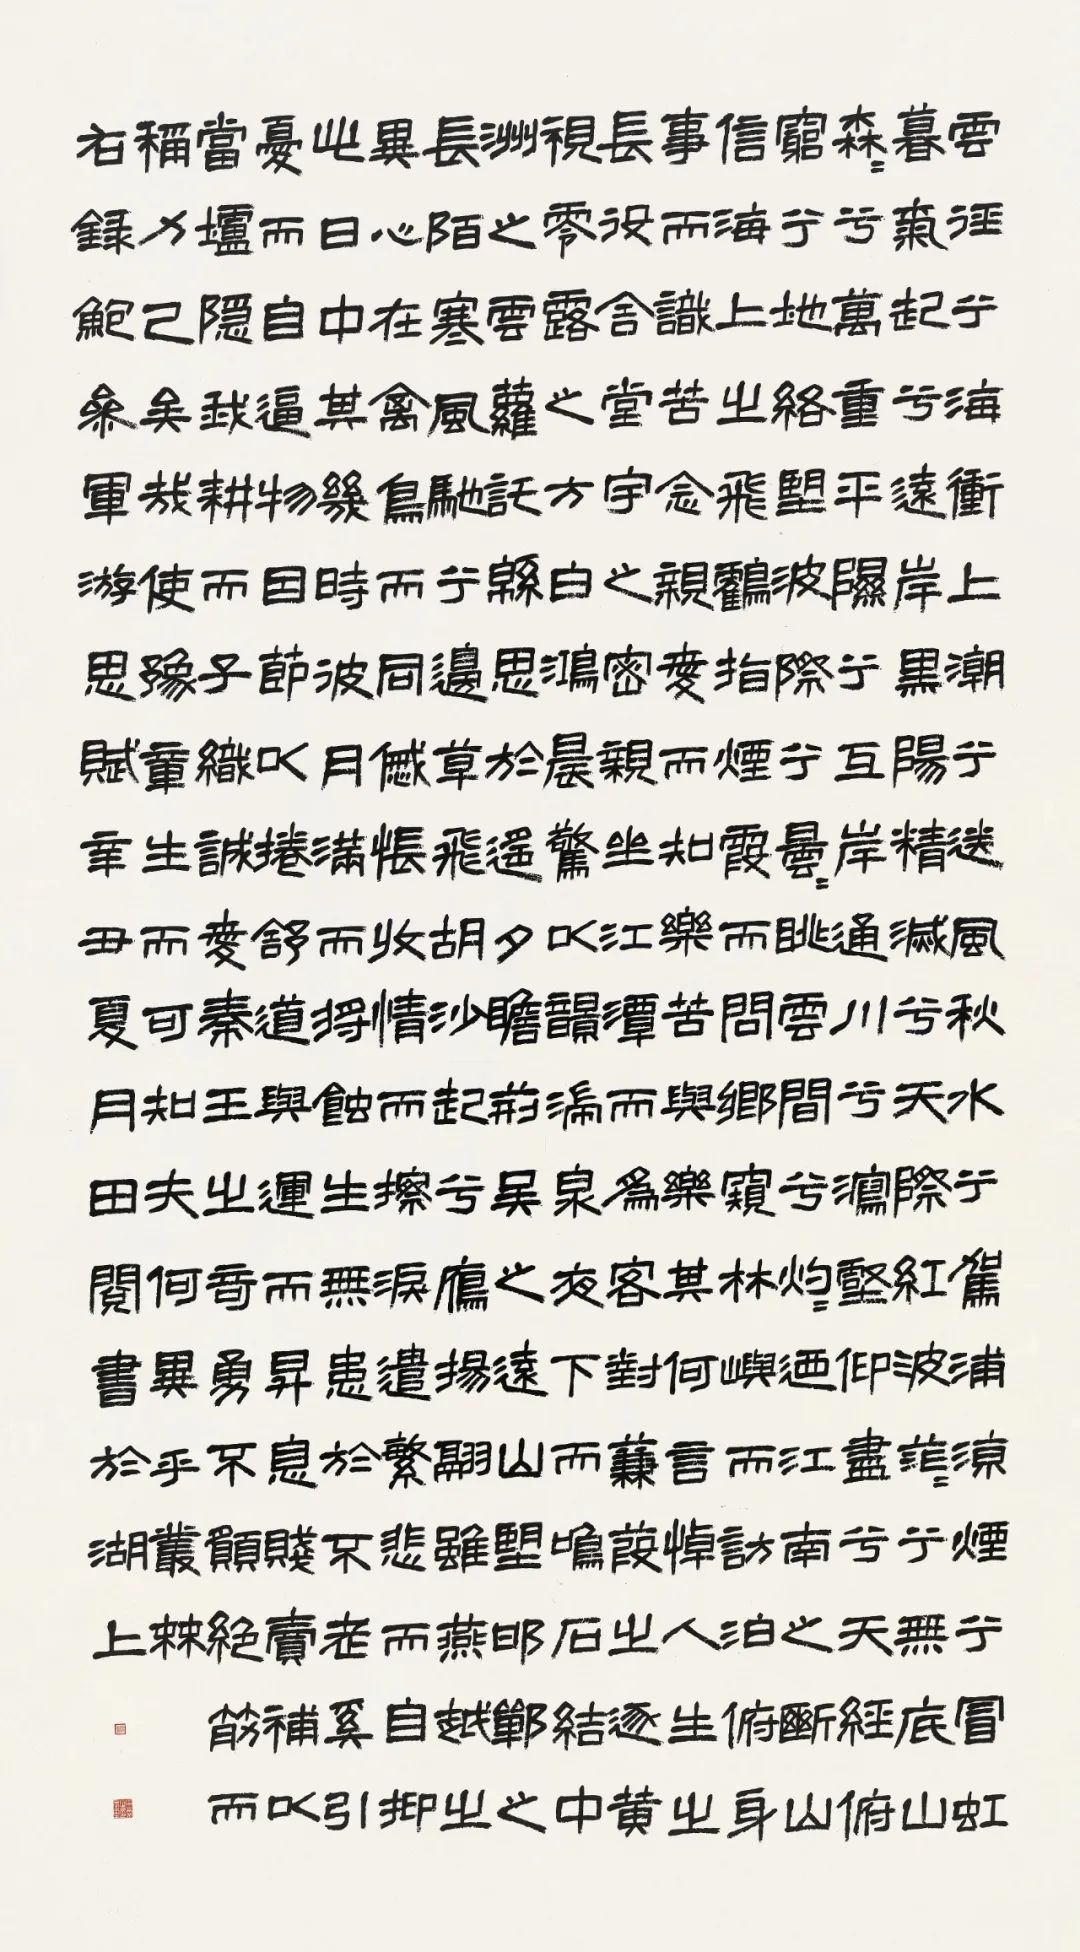 雲徑兮海衝上潮兮送風秋水兮駕浦涼煙兮冒虹
暮氣起兮遠岸黑陽精滅兮天際紅波茫=兮無底山
森=兮萬重平隰兮互岸通川兮瀉壑仰盡兮天經俯
窮兮地絡望波際兮曇=眺雲間兮灼=迺江南之斷山
信海上之飛鸛指煙霞而問鄉窺林嶼而訪泊俯身
事而識苦念親愛而知樂苦與樂其何言悼人生之
長役舍堂宇之密親坐江潭而爲客對蒹葭之逐黃
視零露之方白鴻晨驚以韻湍泉夜下而鳴石結中
洲之雲蘿託緜思於遥夕瞻荊吳之遠山望邯鄲之
長陌寒風馳兮邊草飛胡沙起兮鴈揚翮雖燕越之
異心在禽鳥而同慽悵收情而擦淚遣繁悲而自抑
此日中其幾時彼月滿而將蝕生無患於不老奚引
憂而自逼物因節以捲舒道與運而昇息賤賣補以
當壚隱我耕而子織誠愛秦王之奇勇不願絕筋而
稱力已矣哉使豫章生而可知夫何異乎叢棘
右録鮑叅軍游思賦辛丑夏月田閱書於湖上